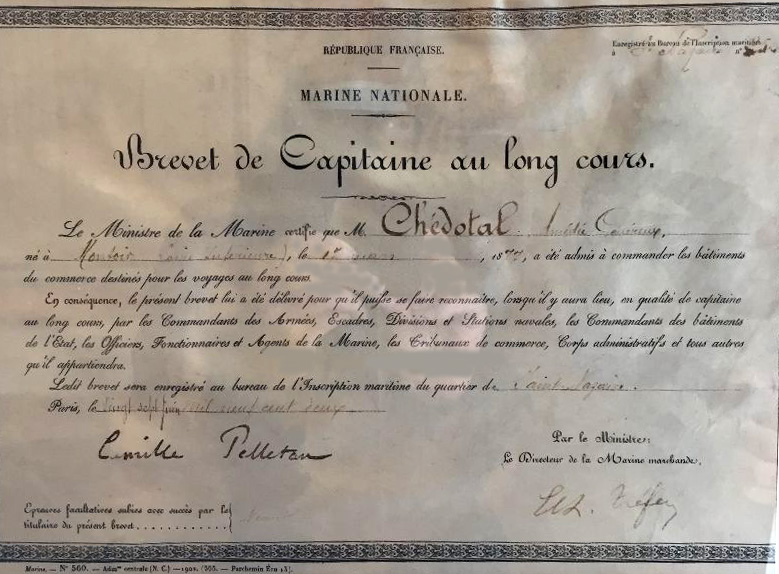 RÉPUBLIQUE FRANÇAISE.
Enregistré au Bureau de l'Inscription maritime
à St Nazaire n°
MARINE NATIONALE.
Brevet de Capitaine au long cours.
Le Ministre de la Marine certifie que M. Chédotal Amédée
né à Montoir (Loire Inférieure), le 1er mars, 1877, a été admis à commander les bâtiments
du commerce destinés pour les voyages au long cours.
En conséquence, le présent brevet lui a été délivré pour qu'il puisse se faire reconnaître, lorsqu'il y aura lieu, en qualité de capitaine
au long cours, par les Commandants des Armées, Escadres, Divisions et Stations navales, les Commandants des bâtiments
de l'Etat, les Officiers, Fonctionnaires et Agents de la Marine, les Tribunaux de commerce, Corps administratifs et tous autres
qu'il appartiendra.
Ledit brevet sera enregistré au bureau de l'Inscription maritime du quartier de Saint-Nazaire.
Paris, le vingt sept juin mil neuf cent deux
Camille Pelletan
Par le Ministre:
Le Directeur de la Marine marchande,
Epreuves facultatives subies avec succès par le
titulaire du présent brevet
Marine. — N° 560. — Adm^on centrale (N. C.) — 1902. (555. — Parchemin Écu 13).